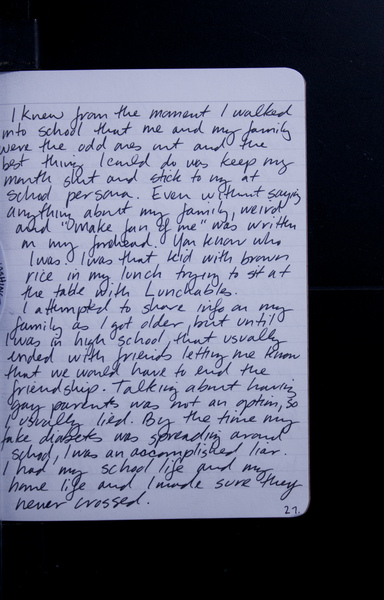 I knew from the moment I walked
into school that me and my family
were the odd ones out and the
best thing I could do was keep my
mouth shut and stick to my at
school persona. Even without saying
anything about my family, weird
and "make fun of me" was written
on my forehead. You know who
I was. I was that kid with brown
rice in my lunch trying to sit at
the table with Lunchables.
I attempted to share info on my
family as I got older, but until
I was in high school, that usually
ended with friends letting me know
that we would have to end the
friendship. Talking about having
gay parents was not an option, so
I usually lied. By the time my
fake diabetes was spreading around
school, I was an accomplished liar.
I had my school life and my
home life and I made sure they
never crossed.
27.